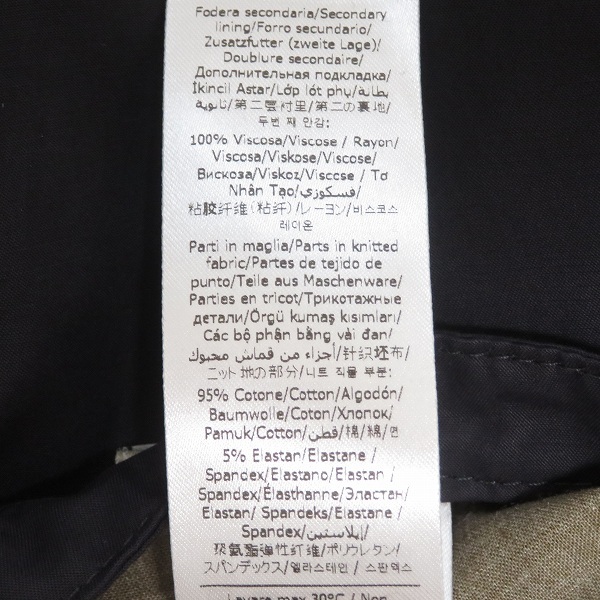 Fodera secondaria/Secondary
lining/Forro secundario/
Zusatzfutter (zweite Lage)/
Doublure secondaire/
Дополнительная подкладка/
İkincil Astar/Lớp lót phụ/بطانة
ثانوية/第二层衬里/第二の裏地/
두번 째 안감:
100% Viscosa/Viscose / Rayon/
Viscosa/Viskose/Viscose/
Вискоза/Viskoz/Viscose / Tơ
Nhân Tạo/فسكوزي/
粘胶纤维(粘纤)/レーヨン/비스코스
레이온
Parti in maglia/Parts in knitted
fabric/Partes de tejido de
punto/Teile aus Maschenware/
Parties en tricot/Трикотажные
детали/Örgü kumaş kısımları/
Các bộ phận bằng vải đan/
أجزاء من قماش محبوك/针织坯布/
ニット地の部分/니트 직물 부분:
95% Cotone/Cotton/Algodón/
Baumwolle/Coton/Хлопок/
Pamuk/Cotton/قطن/棉/綿/면
5% Elastan/Elastane /
Spandex/Elastano/Elastan /
Spandex/Élasthanne/Эластан/
Elastan/ Spandeks/Elastane /
Spandex/إيلاستين/
聚氨酯弹性纤维/ポリウレタン/
スパンデックス/엘라스테인 / 스판덱스
Lavare max 30°C / Non